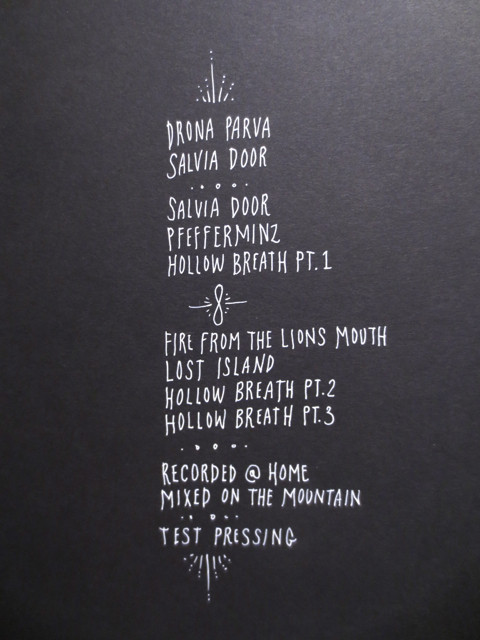 DRONA PARVA
SALVIA DOOR
SALVIA DOOR
PFEFFERMINZ
HOLLOW BREATH PT.1
FIRE FROM THE LIONS MOUTH
LOST ISLAND
HOLLOW BREATH PT.2
HOLLOW BREATH PT.3
RECORDED @ HOME
MIXED ON THE MOUNTAIN
TEST PRESSING